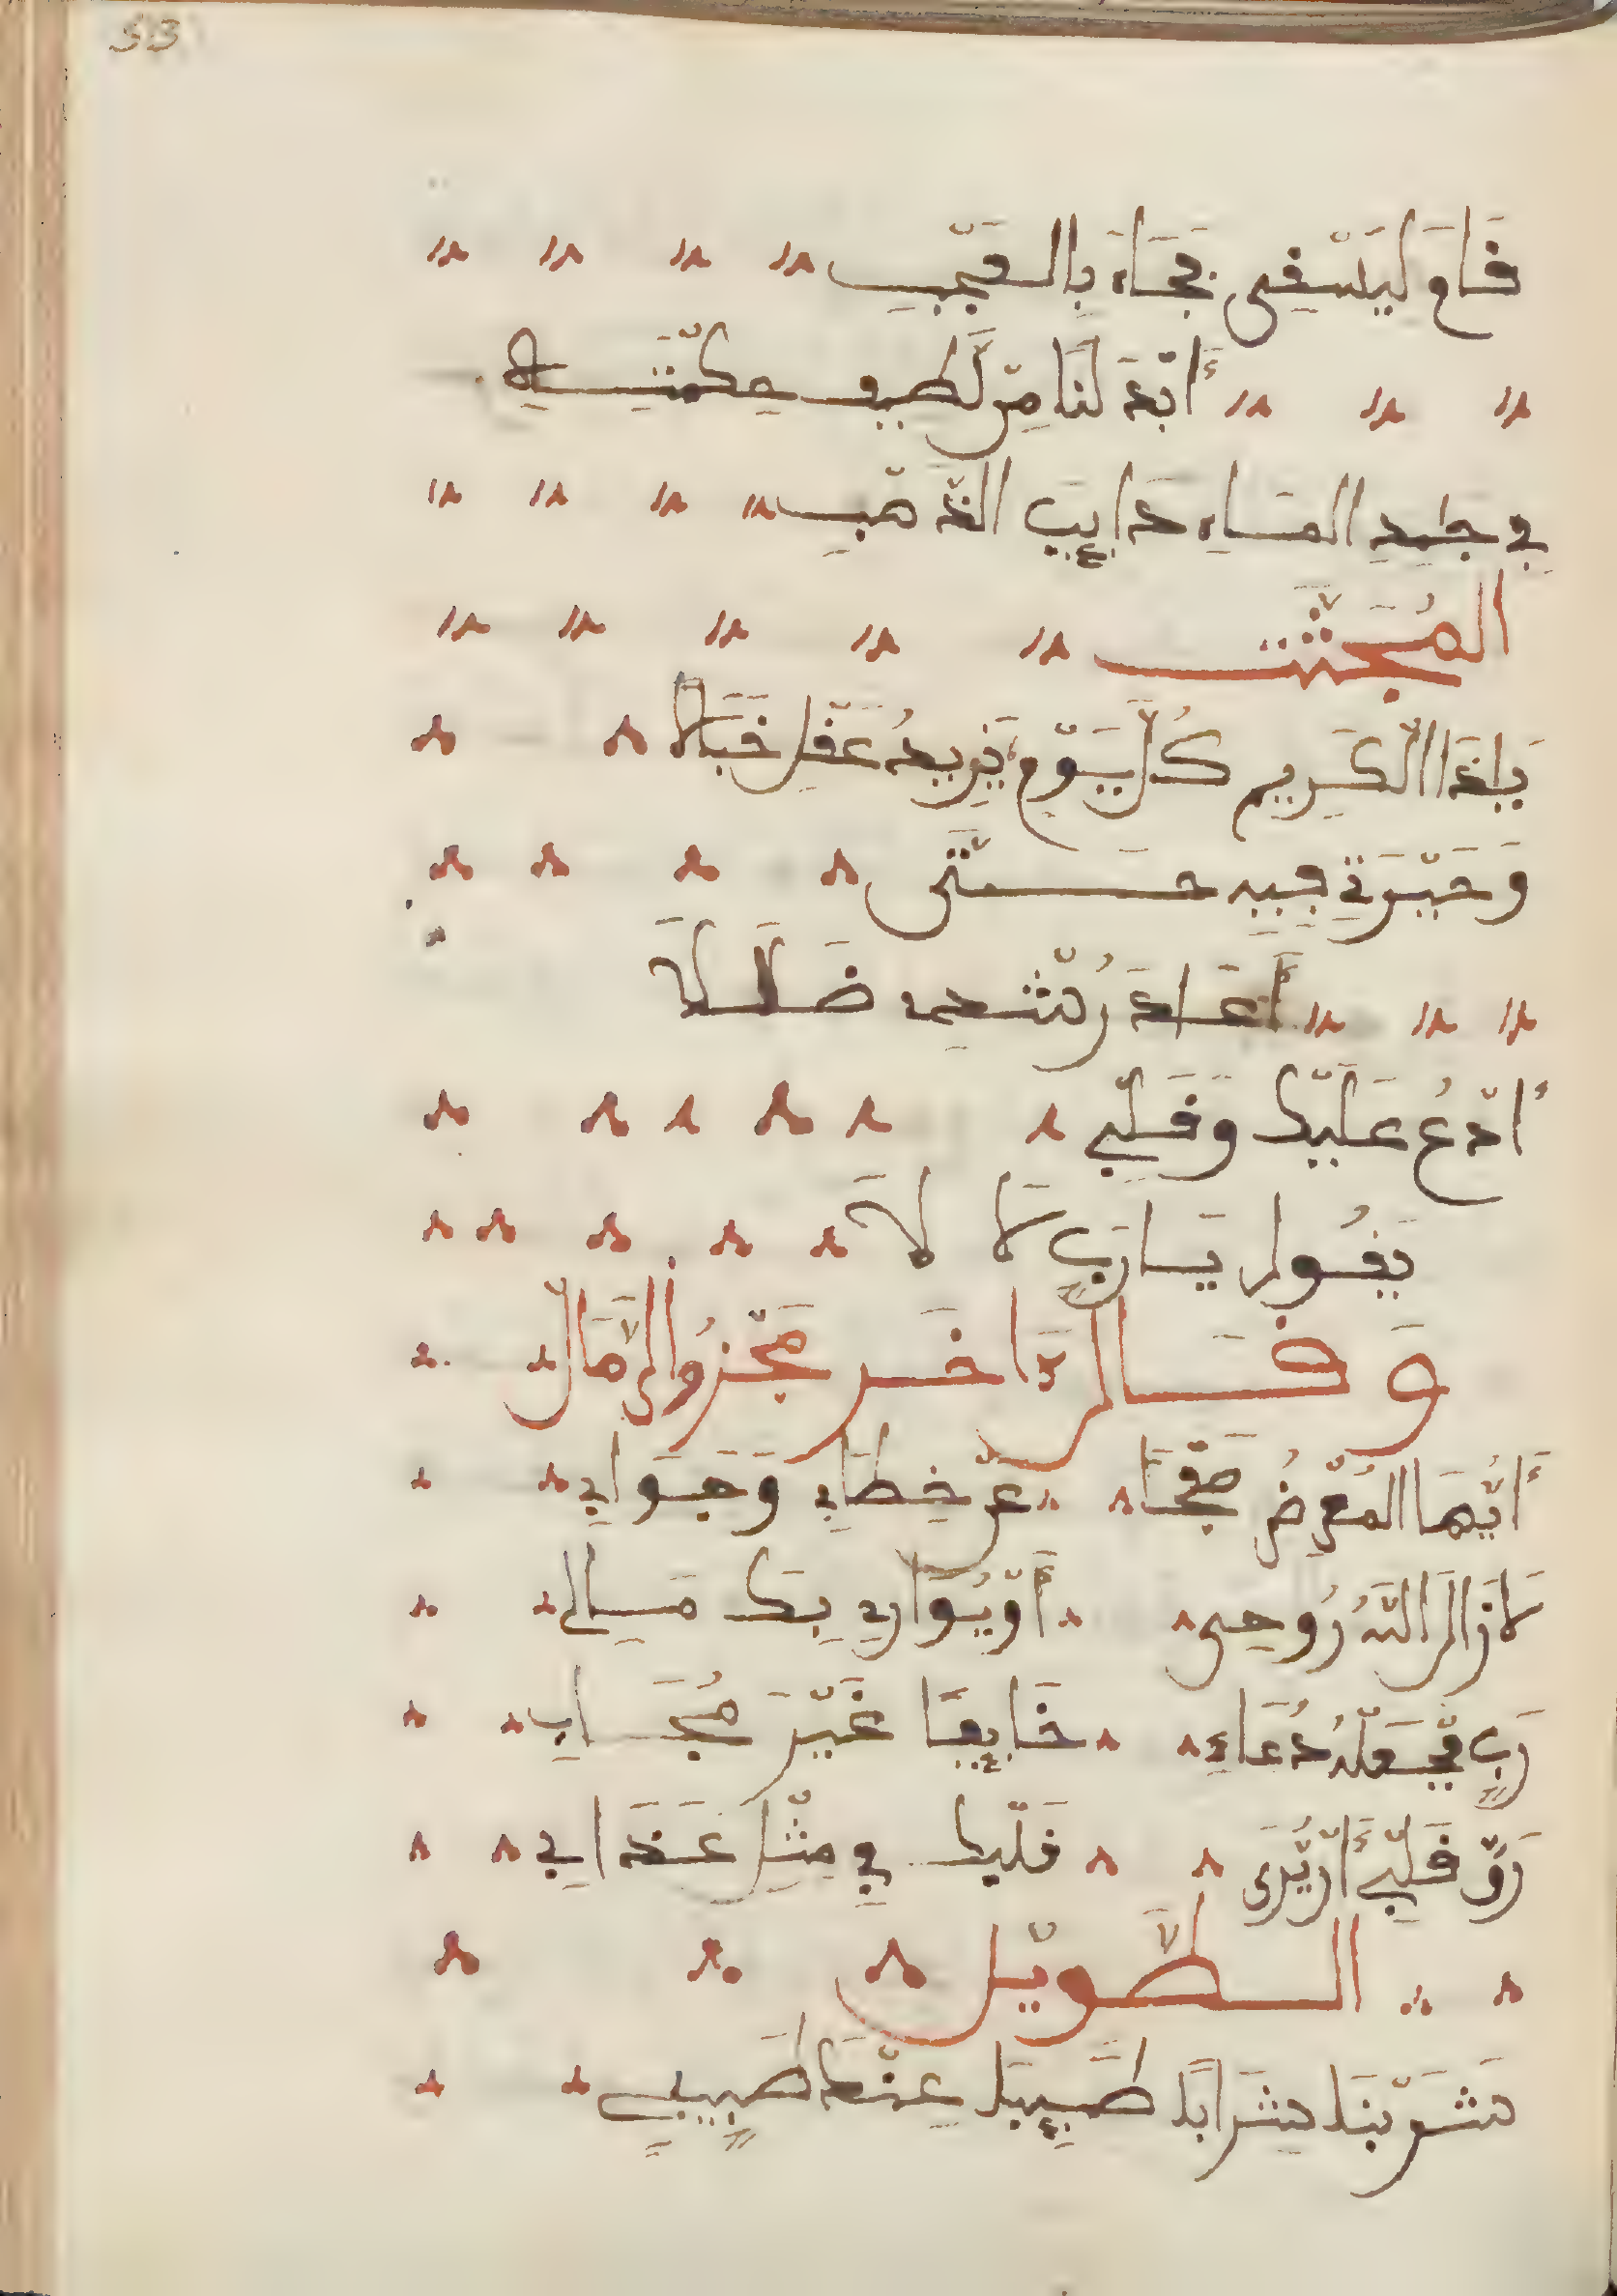 53
قَامَ لِيَسْقِى فَجَاءَ بِالْعَجَبِ
أَبْدَ لَنَا مِنْ لَطِيفِ حِكْمَتِهِ
فِي جَامِدِ الْمَاءِ ذَايِبَ الذَّهَبِ
الْمُجْتَثّ
يَا ذَا الَّذِي كُلَّ يَوْمٍ يَزِيدُ عَقْلِي خَبَالَا
وَحَيْرَتِي فِيهِ حَتَّى
أَعَادَ رُشْدِي ضَلَالَا
أَدْعُ عَلَيْكَ وَقَلْبِي
يَقُولُ يَا رَبِّ لَا لَا
وَقَالَ ءَاخَر مَجْزُو الرَّمَالْ
أَيُّهَا الْمُعْرِضُ صَفْحًا عَنْ خِطَابِي وَجَوَابِي
لَا أَذَالَ اللَّهُ رُوحِى أَوْ يُوَارِي بِكَ مَا لِي
رَبِّ فَجْعَلْهُ دُعَاءً خَايِعًا غَيْرَ مُجَابِ
رَقَّ قَلْبِي أَنْ يُرَى قَلْبُكَ فِي مِثْلِ عَذَابِي
الطَّوِيْل
شَرِبْنَا شَرَابًا طَيِّبًا عِنْدَ طَيِّبٍ